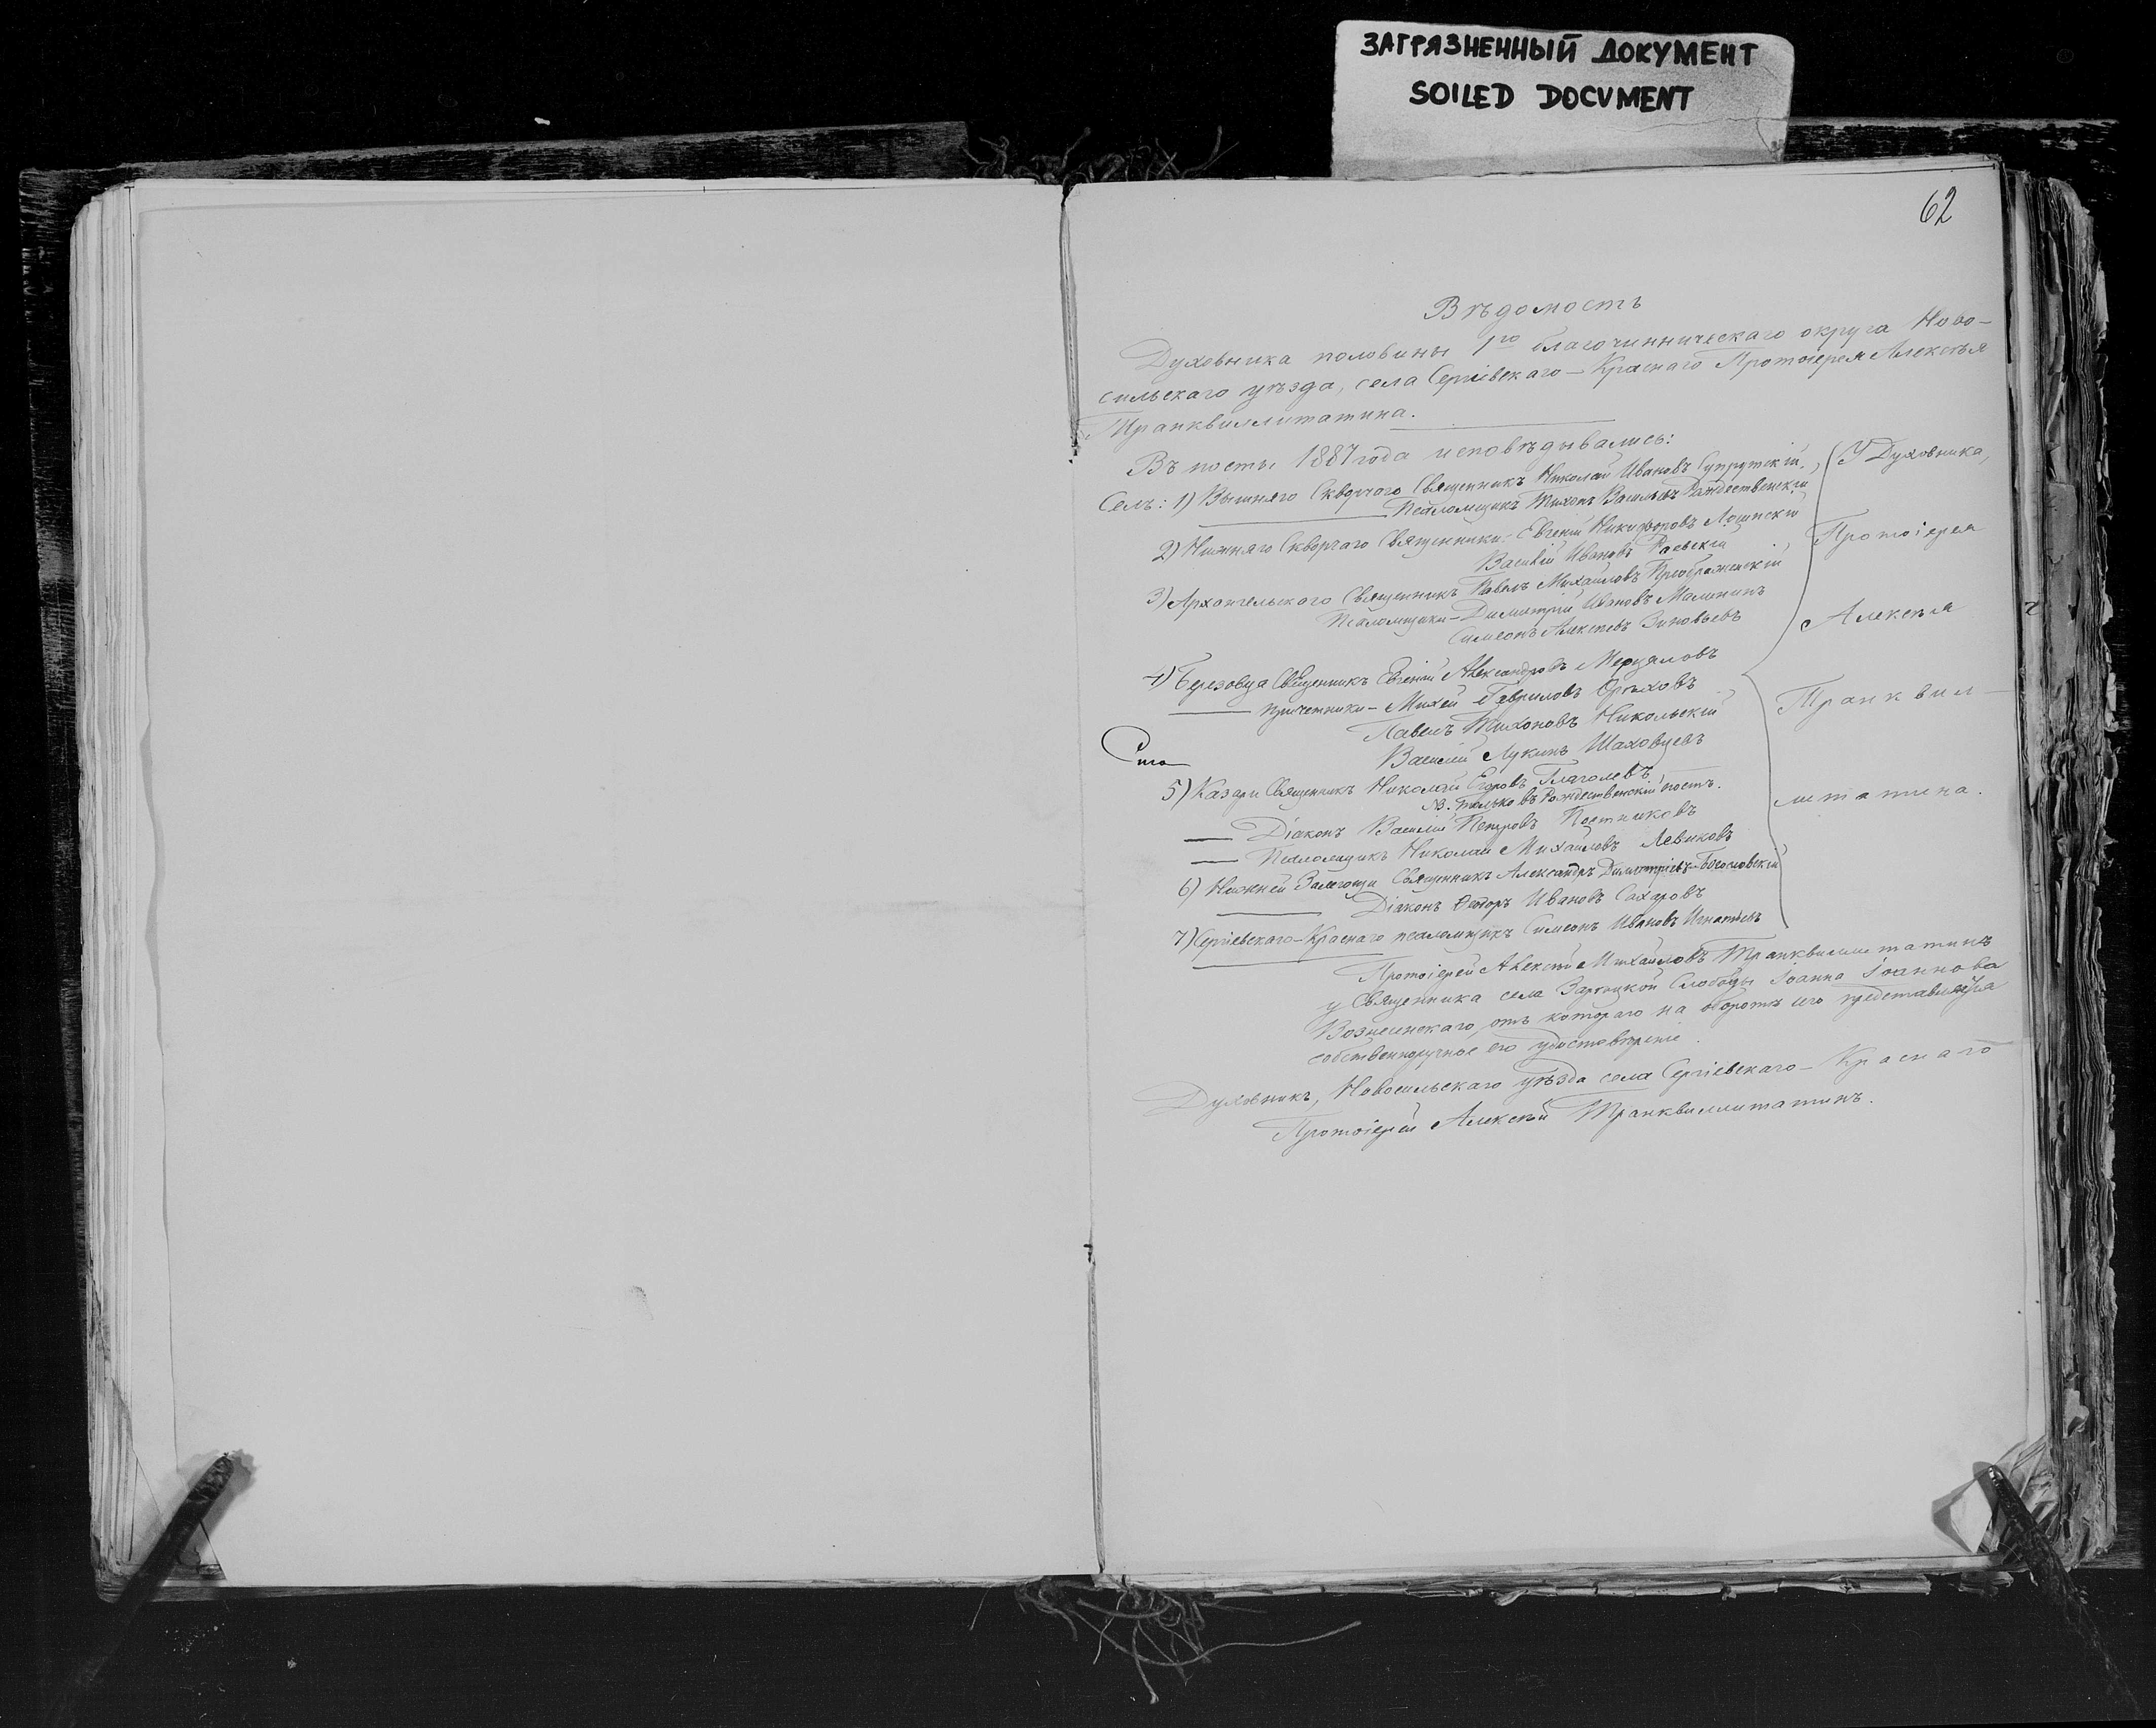 ЗАГРЯЗНЕННЫЙ ДОКУМЕНТ
SOILED DOCUMENT
62
Вѣдомость
Духовника половины 1го благочинническаго округа Ново-
сильскаго уѣзда, села Сергіевскаго-Краснаго Протоіерея Алексѣя
Транквиллитатина.
Въ посты 1887 года исповѣдывались:
Селъ: 1) Вышняго Скворчаго Священникъ Николай Ивановъ Супрутскій,
Псаломщикъ Тихонъ Васильевъ Рождественскій
2) Нижняго Скворчаго Священники: Евгеній Никифоровъ Лошинскій
Василій Ивановъ Раевскій
3) Архангельскаго Священникъ Павелъ Михайловъ Преображенскій
Псаломщики - Димитрій Ивановъ Малининъ
Симеонъ Алексѣевъ Зиновьевъ
4) Березовца Священникъ Евгеній Александровъ Мерцаловъ
причетники - Михей Гавриловъ Орѣховъ
Павелъ Тихоновъ Никольскій
Василій Лукинъ Шаховцевъ
5) Казари Священникъ Николай Егоровъ Глаголевъ
NB. только въ Рождественскій постъ.
Діаконъ Василій Петровъ Постниковъ
Псаломщикъ Николай Михайловъ Левиковъ
6) Нижней Залегощи Священникъ Александръ Димитріевъ Богословскій
Діаконъ Ѳеодоръ Ивановъ Сахаровъ
7) Сергіевскаго-Краснаго псаломщикъ Симеонъ Ивановъ Игнатьевъ
У Духовника,
Протоіерея
Алексѣя
Транквил-
литатина.
Протоіерей Алексѣй Михайловъ Транквиллитатинъ
у Священника села Зарѣцкой Слободы Іоанна Іоаннова
Вознесенскаго, отъ котораго на оборотѣ сего представляется
собственноручное его удостовѣреніе.
Духовникъ, Новосильскаго уѣзда села Сергіевскаго-Краснаго
Протоіерей Алексѣй Транквиллитатинъ.